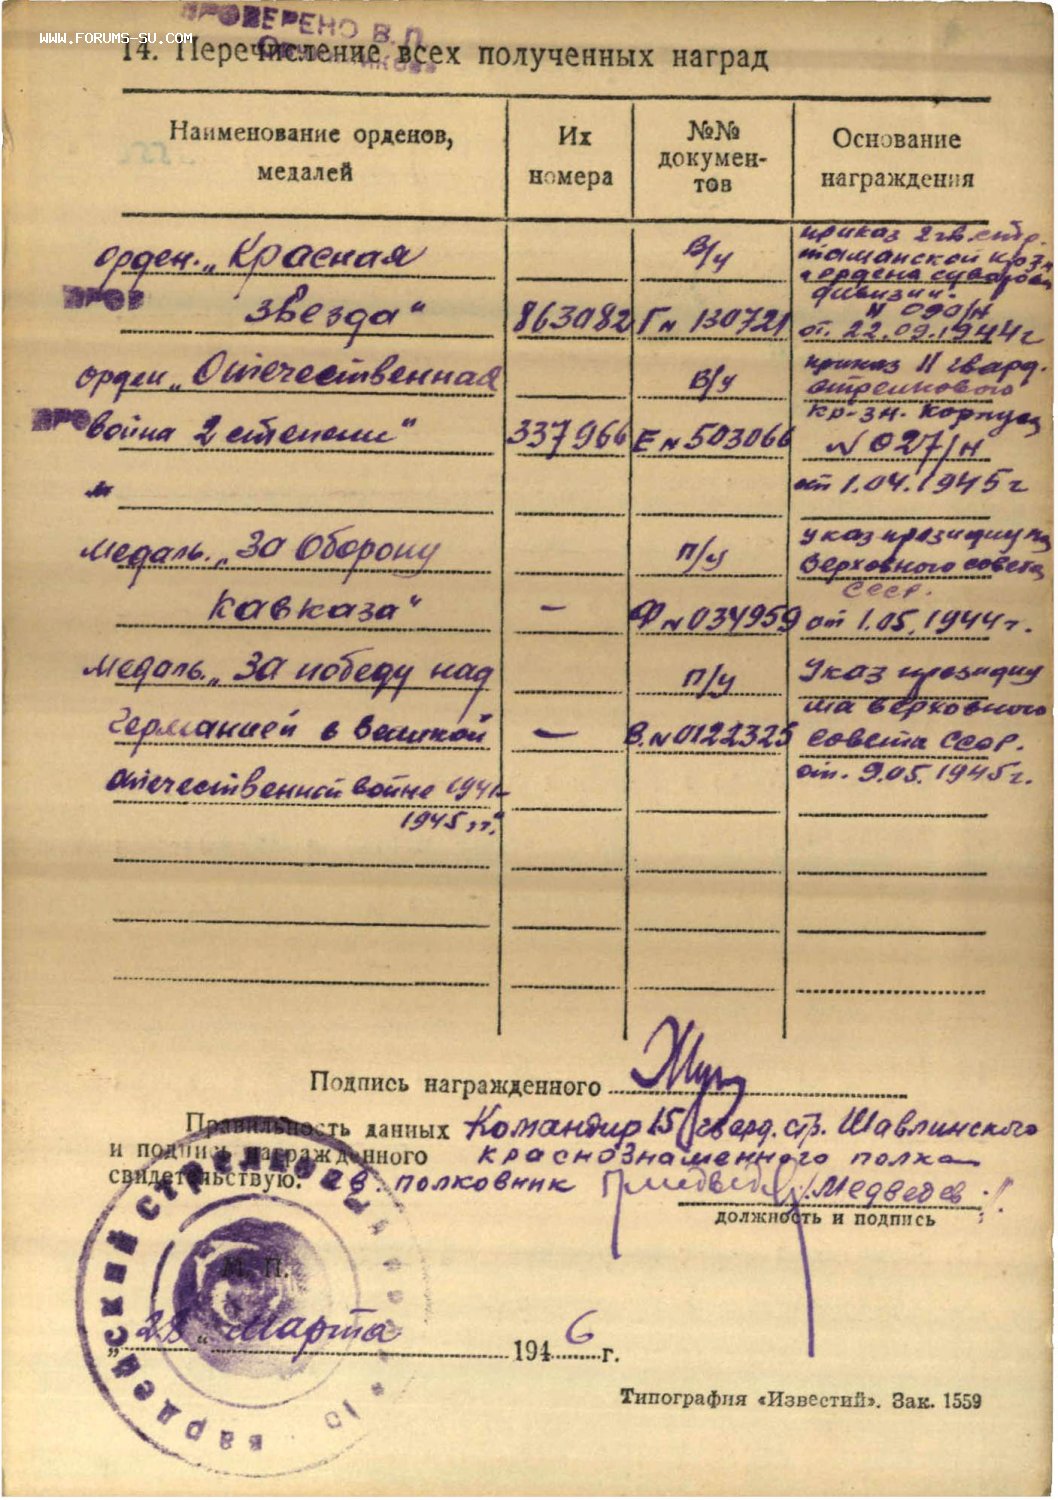 ПРОВЕРЕНО В.П.
WWW.FORUMS-SU.COM
14. Перечисление всех полученных наград
Наименование орденов, медалей
Их номера
№№ докумен-
тов
Основание награждения
орден „Красная
Звезда"
863082
В/у
Г № 130721
приказ 2 гв. стр.
таманской кр. зн.
и ордена суворова
дивизии.
N 090/н
от. 22.09.1944г
орден „Отечественная
война 2 степени"
337966
В/у
Е № 503066
приказ 11 гвард.
стрелкового
кр-зн. корпуса
N 027/н
от 1.04.1945г
медаль „За оборону
Кавказа"
—
п/у
Ф № 034959
указ президиума
Верховного совета
СССР.
от 1.05.1944г.
медаль „За победу над
Германией в Великой
Отечественной войне 1941-
1945 гг."
—
п/у
В. № 0122325
Указ президиу
ма верховного
совета СССР.
от. 9.05.1945г.
Подпись награжденного
Правильность данных Командир 15 гвард. стр. Шавлинского
и подпись награжденного краснознаменного полка
свидетельствую. гв. полковник Медведев
должность и подпись
М. П.
„28" Марта 1946 г.
Типография «Известий». Зак. 1559